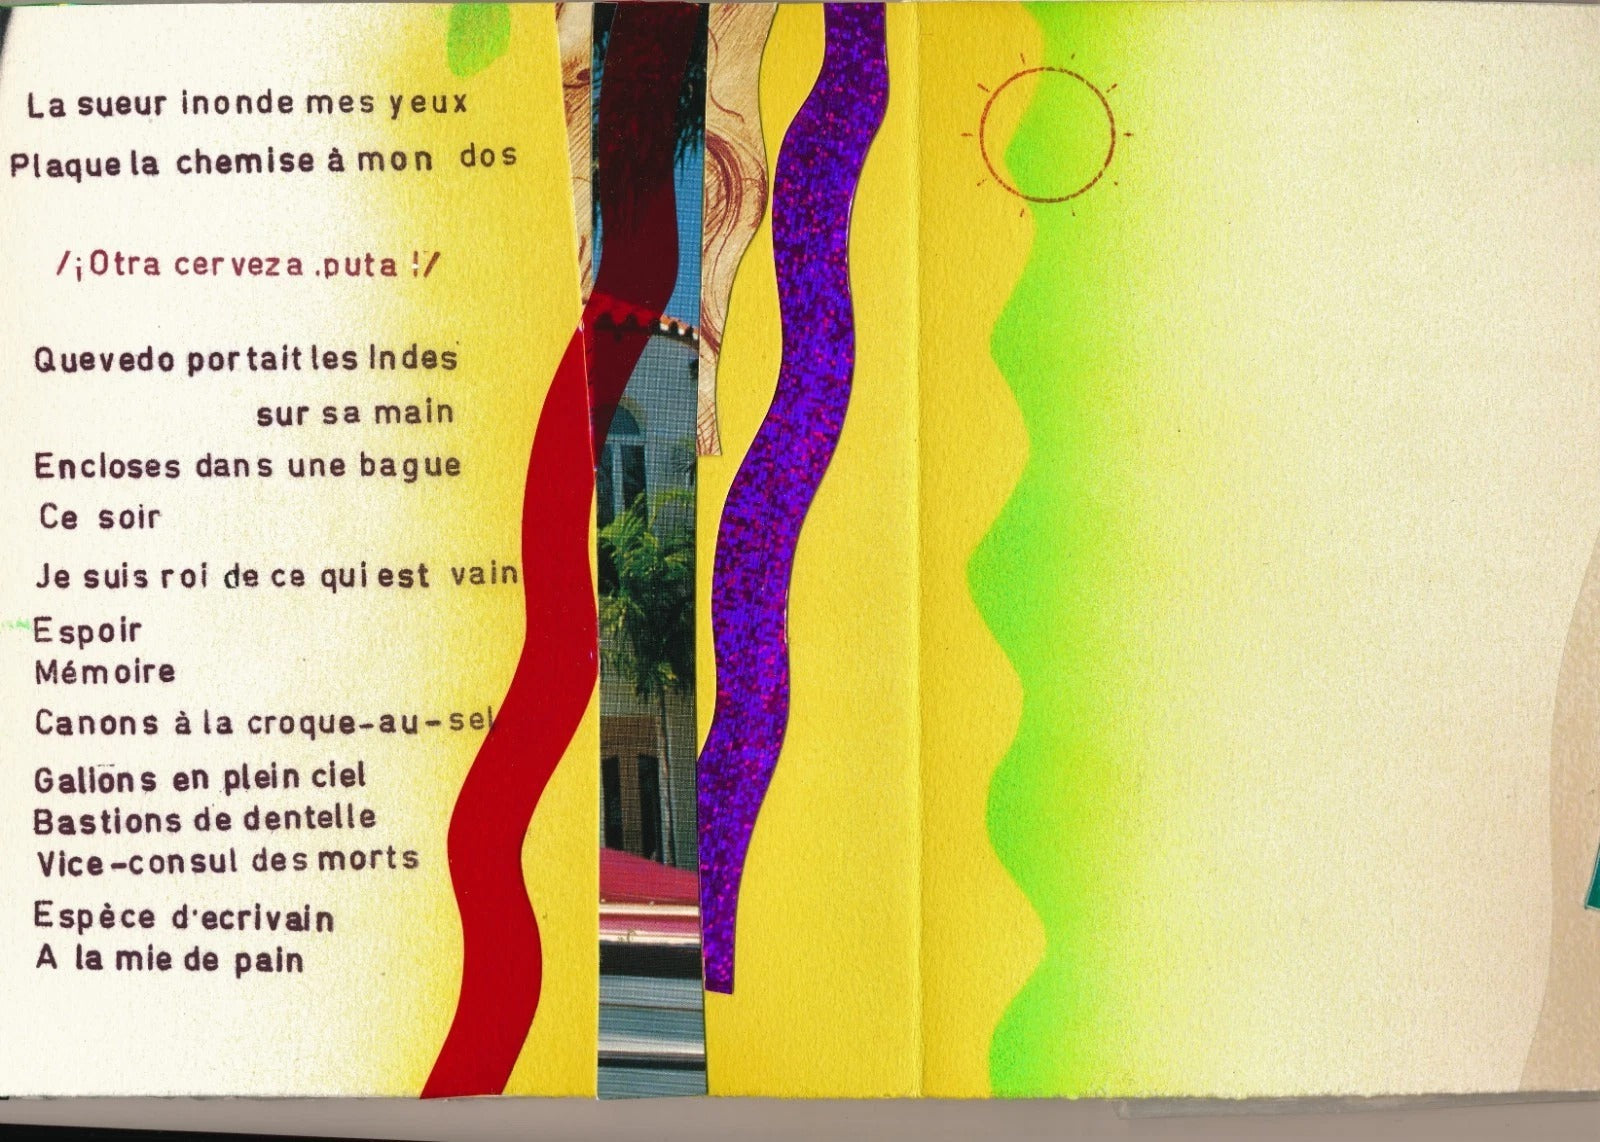 La sueur inonde mes yeux
Plaque la chemise à mon dos
/¡Otra cerveza .puta !/
Quevedo portait les Indes
sur sa main
Encloses dans une bague
Ce soir
Je suis roi de ce qui est vain
Espoir
Mémoire
Canons à la croque-au-sel
Galions en plein ciel
Bastions de dentelle
Vice-consul des morts
Espèce d'ecrivain
A la mie de pain